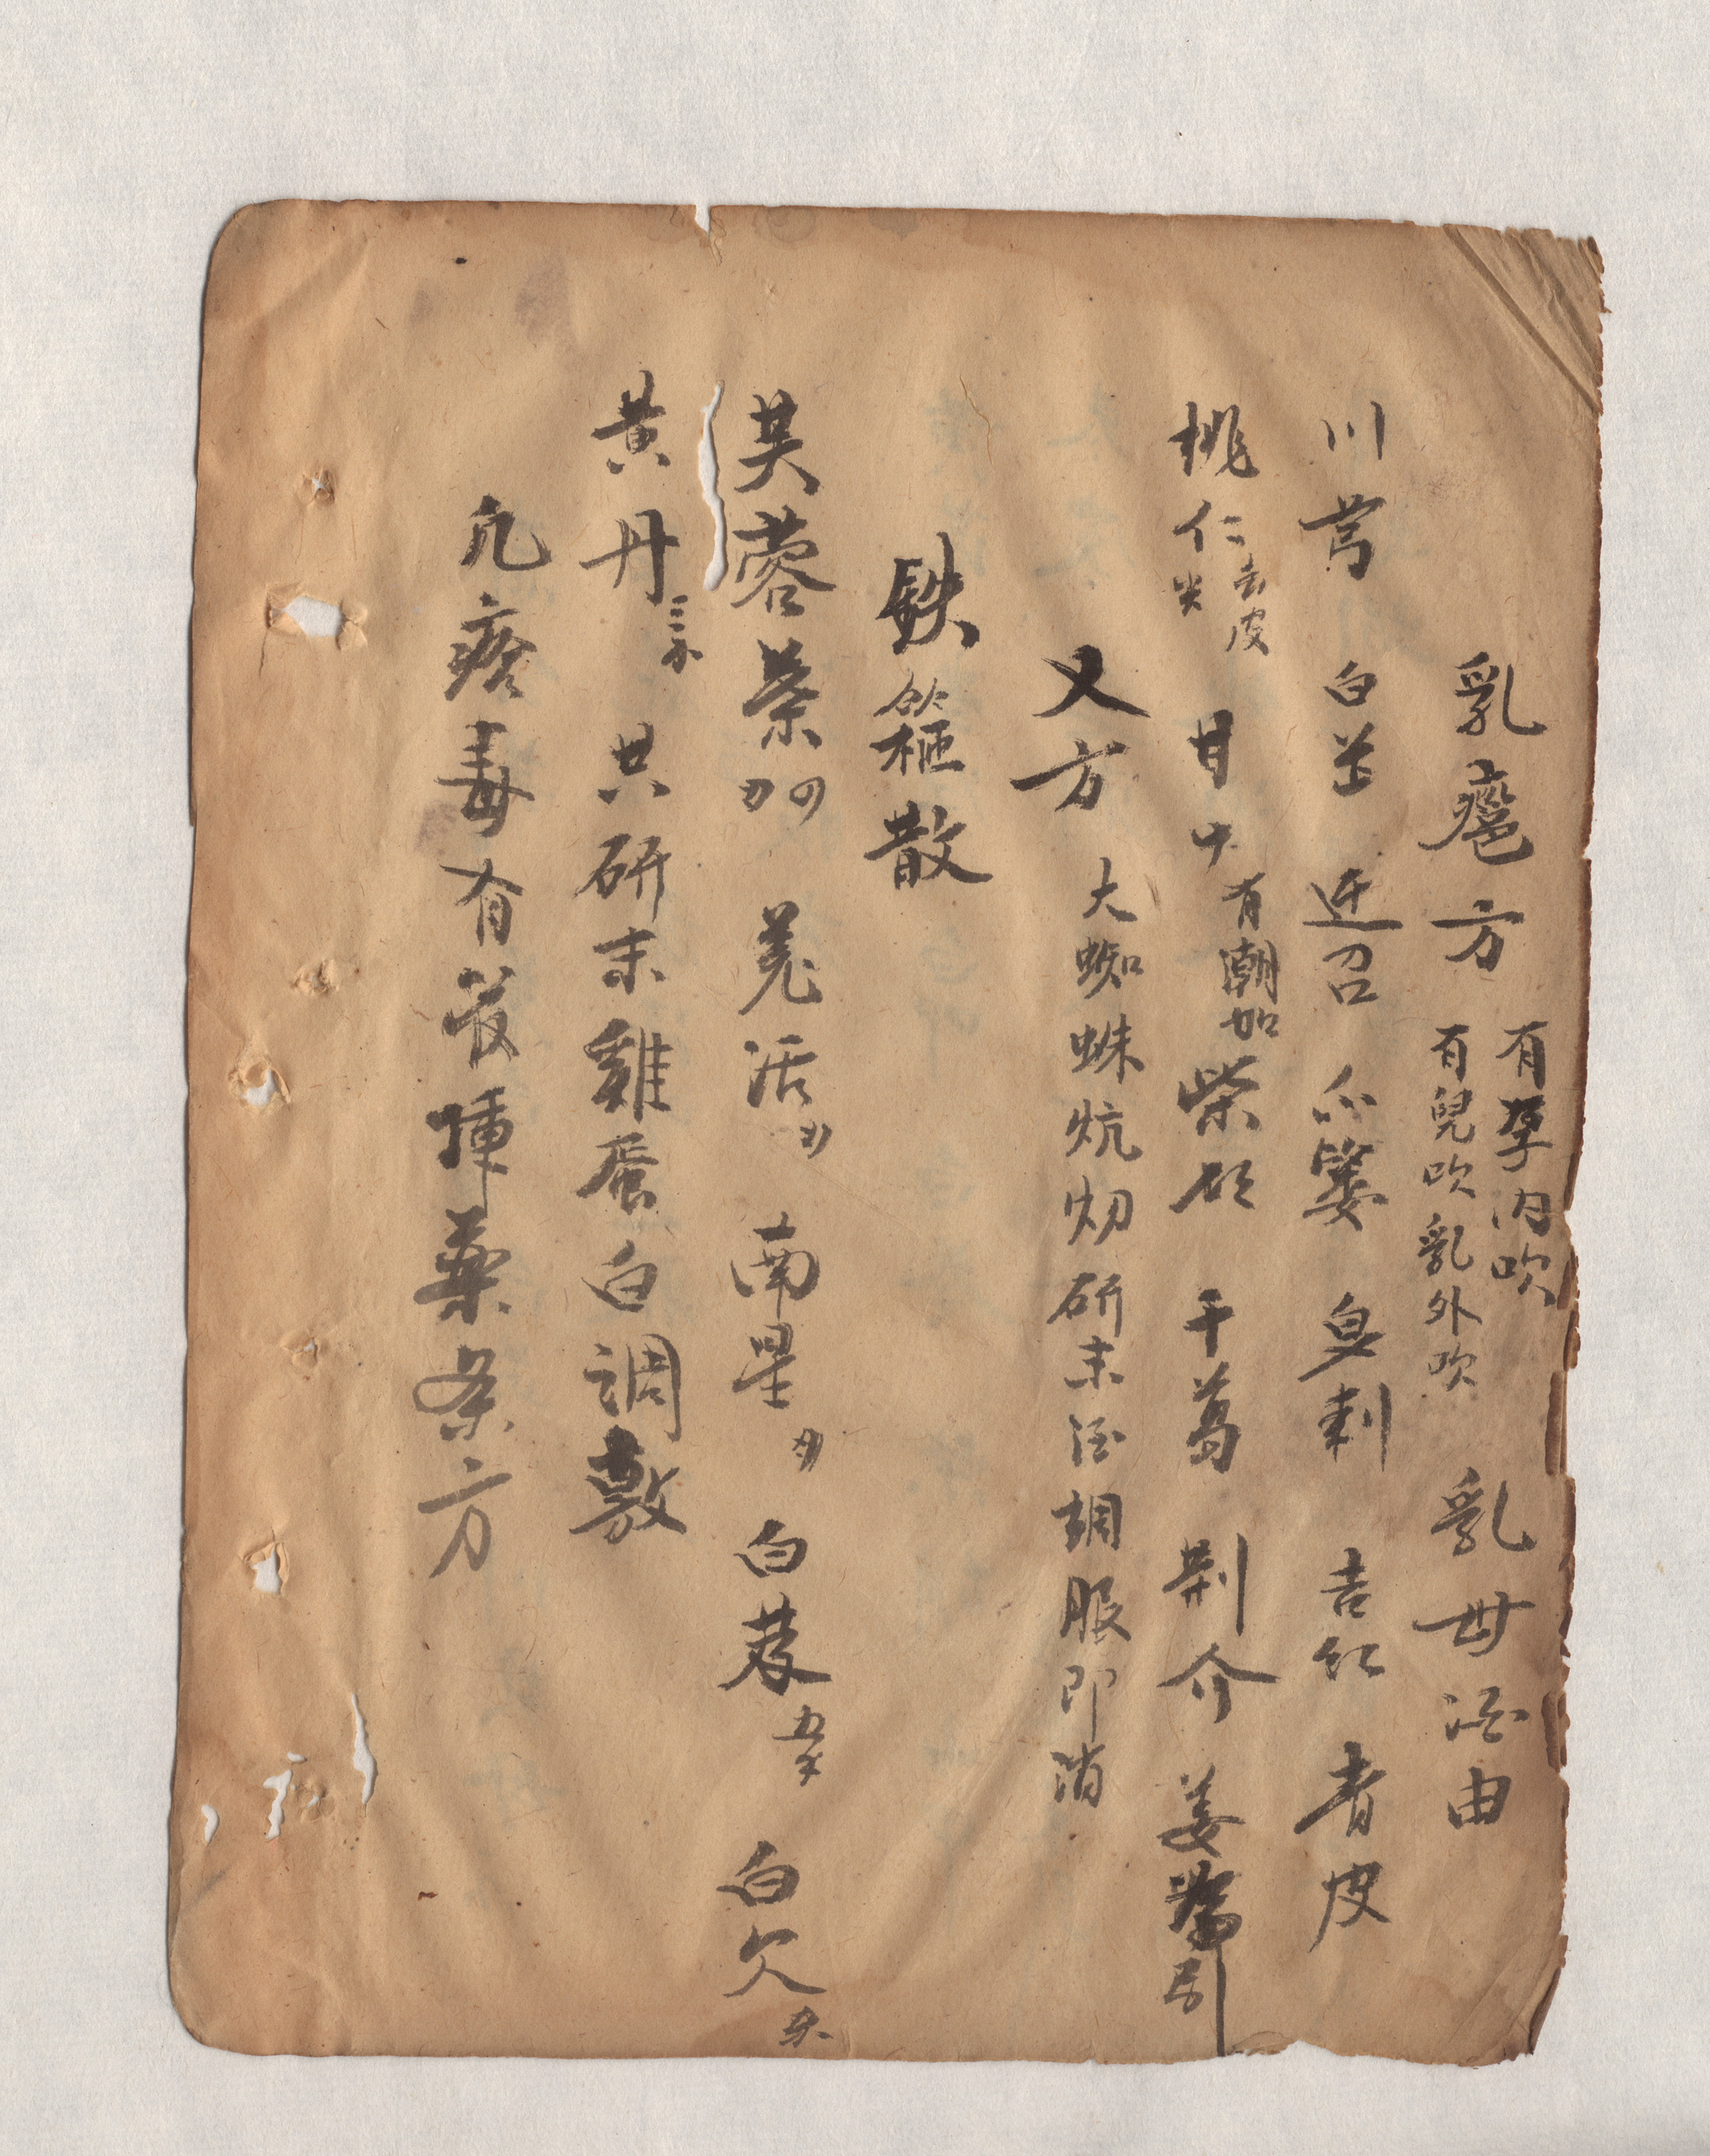 乳癰方 有孕内吹 有兒吹乳外吹 乳母活由
川芎 白芷 迕召 瓜蒌 皂刺 吉红 青皮
桃仁 去皮尖 甘中 有潮加柴胡 干葛 荆介 姜葱引
又方 大蜘蛛炕灱研末酒調服即消
鉄箍散
芙蓉葉 羗活 南星 白芨 白欠
黄丹 三尔 共研末雞蛋白調敷
凢瘡毒有管揷藥条方